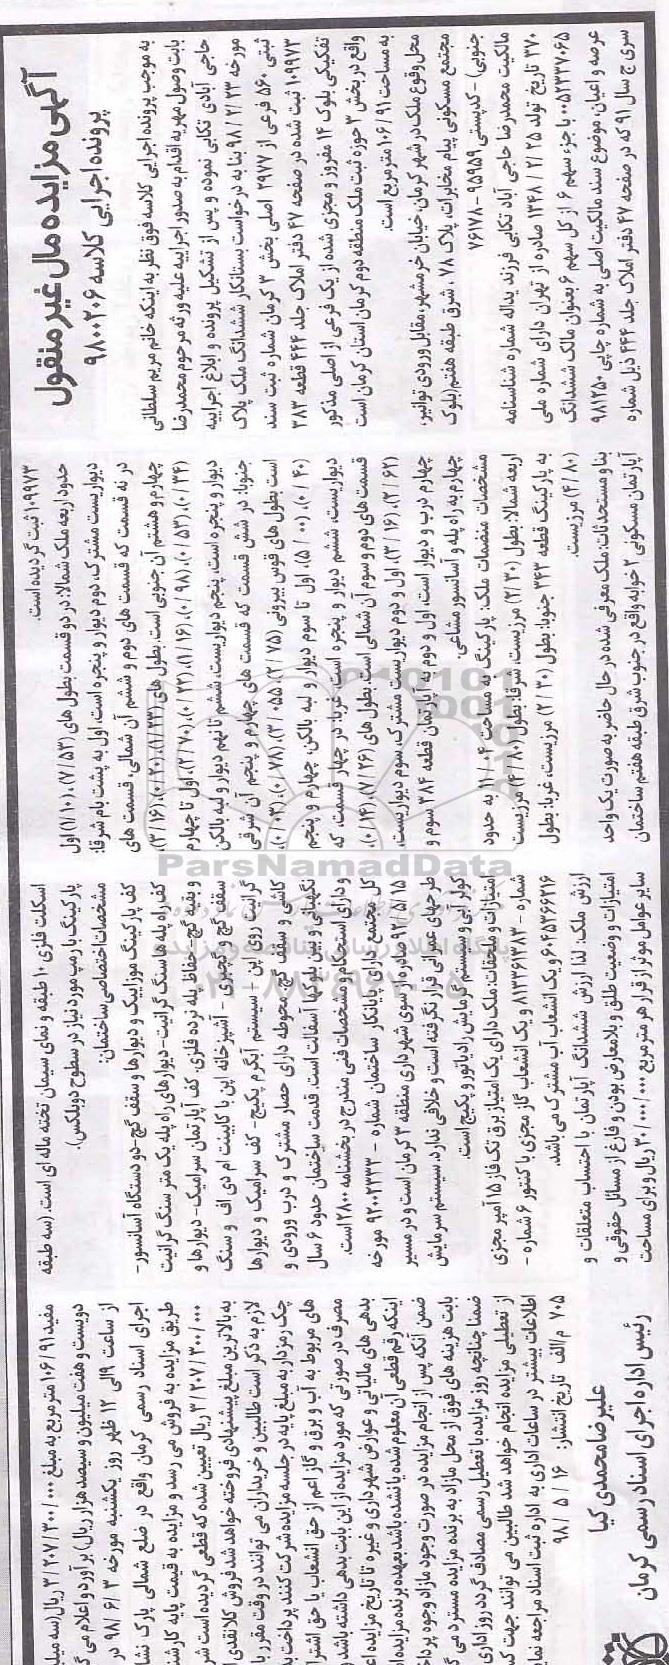 آگهی مزایده مال غیر منقول
پرونده اجرایی کلاسه ۹۸۰۰۲۰۶
به موجب پرونده اجرایی کلاسه فوق نظر به اینکه خانم مریم سلطانی
بابت وصول مهریه اقدام به صدور اجراییه علیه ورثه مرحوم محمدرضا
حاجی آبادی تکابی نموده و پس از تشکیل پرونده و ابلاغ اجراییه
مورخه ۹۸/۲/۲۳ بنا به درخواست بستانکار ششدانگ ملک پلاک
ثبتی ۵۶۰ فرعی از ۲۹۷۷ اصلی بخش ۳ کرمان شماره ثبت سند
۱۰۹۹۷۳ ثبت شده در صفحه ۴۷ دفتر املاک جلد ۴۴۴ قطعه ۲۸۳
تفکیکی بلوک ۱۴ مفروز و مجزی شده از یک فرعی از اصلی مذکور
واقع در بخش ۳ حوزه ثبت ملک منطقه دوم کرمان استان کرمان است
به مساحت ۱۰۶/۹۱ متر مربع است.
محل وقوع ملک در شهر کرمان، خیابان خرمشهر، مقابل ورودی توانیر،
مجتمع مسکونی پیام مخابرات، پلاک ۷۸، شرق طبقه هفتم (بلوک
جنوبی) - کدپستی ۹۵۹۵۹-۷۶۱۷۸
مالکیت محمدرضا حاجی آباد تکابی فرزند یداله شماره شناسنامه
۳۷۰ تاریخ تولد ۱۳۴۸/۲/۲۵ صادره از تهران دارای شماره ملی
۰۰۵۲۳۳۷۰۶۵ با جزء سهم ۶ از کل سهم ۶ بعنوان مالک ششدانگ
عرصه و اعیان، موضوع سند مالکیت اصلی به شماره چاپی ۹۸۱۲۵۰
سری ج سال ۹۱ که در صفحه ۴۷ دفتر املاک جلد ۴۴۴ ذیل شماره
۱۰۹۹۷۳ ثبت گردیده است.
حدود اربعه ملک شمالا: در دو قسمت بطول های (۷/۵۳)، (۱/۱۰) اول
دیواریست مشترک، دوم دیوار و پنجره است، اول به پشت بام شرقا:
در نه قسمت که قسمت های دوم و ششم آن شمالی، قسمت های
چهارم و هشتم آن جنوبی است. بطول های (۱/۲۳)، (۰/۲۰)، (۳/۱۶)،
(۰/۳۴)، (۰/۵۳)، (۰/۹۸)، (۱/۱۶)، (۰/۲۳)، (۳/۷۰)، اول تا چهارم
دیوار و پنجره است، پنجم دیواریست، ششم تا نهم دیوار و لبه بالکن
جنوبا: در شش قسمت که قسمت های چهارم و پنجم آن شرقی
است بطول های قوس بیرونی (۲/۷۵)، (۳/۰۵۵)، (۰/۷۸)، (۰/۰۳)،
(۰/۴۰)، (۵/۰۰)، اول تا سوم دیوار و لبه بالکن، چهارم و پنجم
دیواریست، ششم دیوار و پنجره است، غربا: در چهار قسمت، که
قسمت های دوم و سوم آن شمالی است، بطول های (۷/۲۶)، (۰/۱۴)،
(۲/۶۲)، (۳/۱۶)، اول و دوم دیواریست مشترک، سوم دیواریست،
چهارم درب و دیوار است، اول و دوم به آپارتمان قطعه ۲۸۴ سوم و
چهارم به راه پله و آسانسور مشاعی.
مشخصات منضمات ملک: پارکینگ به مساحت ۱۱/۰۴ به حدود
اربعه شمالا: بطول (۲/۳۰) مرزیست، شرقا: بطول (۴/۸۰) مرزیست
به پارکینگ قطعه ۲۴۳ جنوبا: بطول (۲/۳۰) مرزیست، غربا: بطول
(۴/۸۰) مرزیست.
بنا و مستحدثات: ملک معرفی شده در حال حاضر به صورت یک واحد
آپارتمان مسکونی ۲ خوابه واقع در جنوب شرق طبقه هفتم ساختمان
اسکلت فلزی ۱۰ طبقه و نمای سیمان تخته ماله ای است. (سه طبقه
پارکینگ با رمپ مورد نیاز در سطوح دوبلکس).
مشخصات اختصاصی ساختمان:
کف پارکینگ موزاییک و دیوارها و سقف گچ-دو دستگاه آسانسور-
کف راه پله ها سنگ گرانیت- دیوارهای راه پله یک متر سنگ گرانیت
و بقیه گچ- حفاظ پله نرده فلزی. کف آپارتمان سرامیک- دیوارها و
سقف گچ و گچبری - آشپزخانه اپن با کابینت ام دی اف و سنگ
گرانیت روی اپن - سیستم آبگرم پکیج- کف سرامیک و دیوارها
کاشی و سقف گچ. محوطه دارای حصار مشترک و درب ورودی و
نگهبانی و بین بلوکها آسفالت است. قدمت ساختمان حدود ۶ سال
و دارای استحکام و مشخصات فنی مندرج در بخشنامه ۲۸۰۰ است.
کل مجتمع دارای پایانکار ساختمان شماره - ۹۲۰۰۲۳۳۳ مورخه
۹۲/۵/۱۵ صادره از سوی شهرداری منطقه ۳ کرمان است و در مسیر
طرحهای عمرانی قرار نگرفته است و خلافی ندارد، سیستم سرمایش
کولر آبی و سیستم گرمایش رادیاتور و پکیج است.
امتیازات و ملحقات: ملک دارای یک امتیاز برق تک فاز ۱۵ آمپر مجزی
شماره - ۸۱۳۲۶۱۲۸۳ و یک انشعاب گاز مجزی با کنتور ۶ شماره -
۶۰۴۵۳۶۶۲۱۶ و یک انشعاب آب مشترک می باشد.
ارزش ملک: لذا ارزش ششدانگ آپارتمان با احتساب متعلقات و
امتیازات و وضعیت طلق و بلامعارض بودن و فارغ از مسائل حقوقی و
سایر عوامل موثر از قرار هر متر مربع ۳۰/۰۰۰/۰۰۰ ریال و برای مساحت
مفید ۱۰۶/۹۱ متر مربع به مبلغ ۳/۲۰۷/۳۰۰/۰۰۰ ریال (سه میلیا
دویست و هفت میلیون و سیصد هزار ریال) برآورد و اعلام می گ
از ساعت ۹ الی ۱۲ ظهر روز یکشنبه مورخه ۹۸/۶/۳ در
اجرای اسناد رسمی کرمان واقع در ضلع شمالی پارک نشا
طریق مزایده به فروش می رسد و مزایده به قیمت پایه کارشنا
۳/۲۰۷/۳۰۰/۰۰۰ ریال تعیین شده که قطعی گردیده است شر
به بالاترین مبلغ پیشنهادی فروخته خواهد شد فروش کلا نقدی ا
لازم به ذکر است طالبین و خریداران می توانند در وقت مقرر با
چک رمزدار به مبلغ پایه در جلسه مزایده شرکت کنند پرداخت بد
های مربوط به آب و برق و گاز اعم از حق انشعاب یا حق اشترا
مصرف در صورتی که مورد مزایده از این بابت بدهی داشته باشد
بدهی های مالیاتی و عوارض شهرداری و غیره تا تاریخ مزایده اع
اینکه رقم قطعی آن معلوم شده یا نشده باشد بعهده برنده مزایده
ضمن آنکه پس از انجام مزایده در صورت وجود مازاد وجوه پردا
بابت هزینه های فوق از محل مازاد به برنده مزایده مسترد می گ
ضمنا چنانچه روز مزایده با تعطیل رسمی مصادف گردد روز اداری
از تعطیلی مزایده انجام خواهد شد طالبین می توانند جهت کس
اطلاعات بیشتر در ساعات اداری به اداره ثبت اسناد مراجعه نمای
۷۰۵ م الف تاریخ انتشار: ۹۸/۵/۱۶
علیرضا محمدی کیا
رئیس اداره اجرای اسناد رسمی کرمان
ParsNamadData